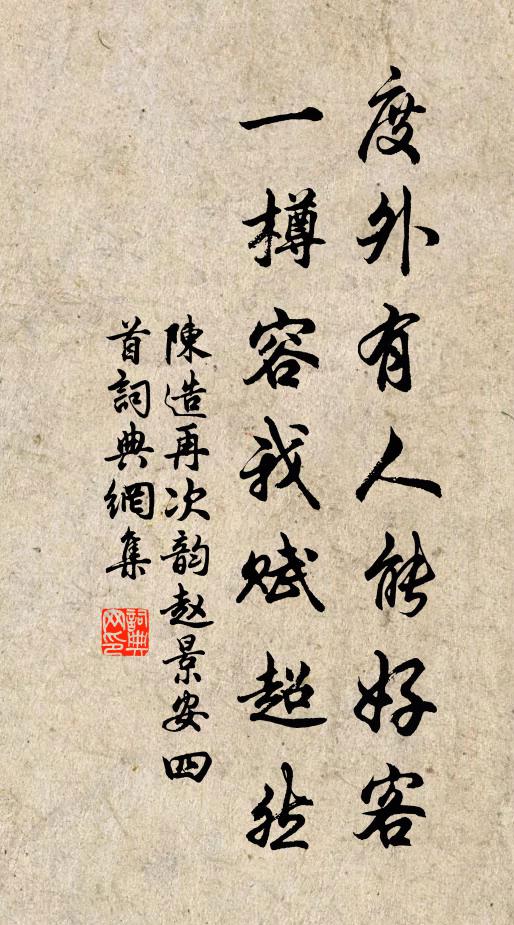 度外有人能好客
一樽容我赋超然
陳造再次韵赵景安四
首詞典網集
詞典网印